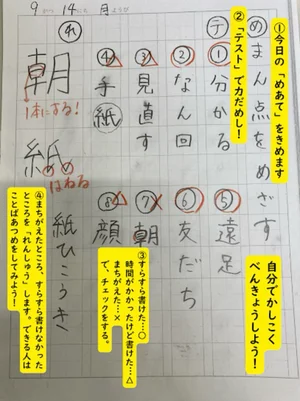 9がつ14にち 月ようび
め まん点をめざす
テ
①分かる
②なん回
③見直す
④手紙
⑤遠足
⑥友だち
⑦朝
⑧顔
れ
朝
1本にする!
紙 紙ひこうき
はねる
①今日の「めあて」をきめます
②「テスト」で力だめし!
③すらすら書けた…○
時間がかかったけど書けた…△
まちがえた…×
で、チェックをする。
④まちがえたところ、すらすら書けなかった
ところを「れんしゅう」します。できる人は
ことばあつめをしてみよう!
自分でかしこく
べんきょうしよう!